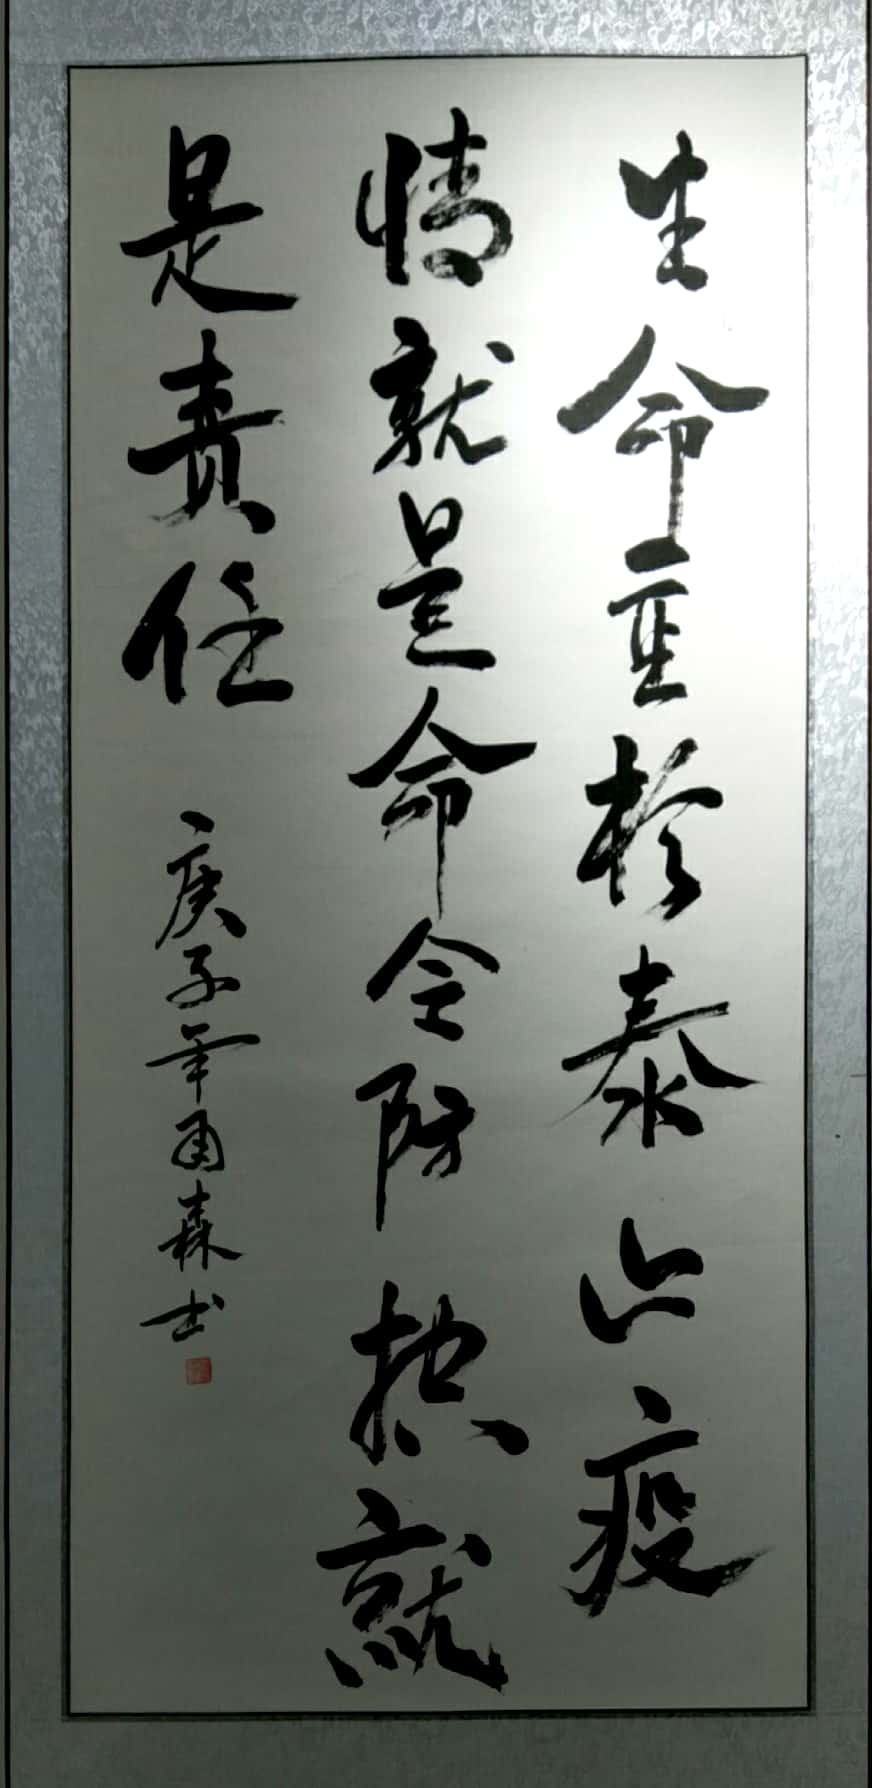 生命重於泰山疫
情就是命令防控就
是责任
庚子年雨森书